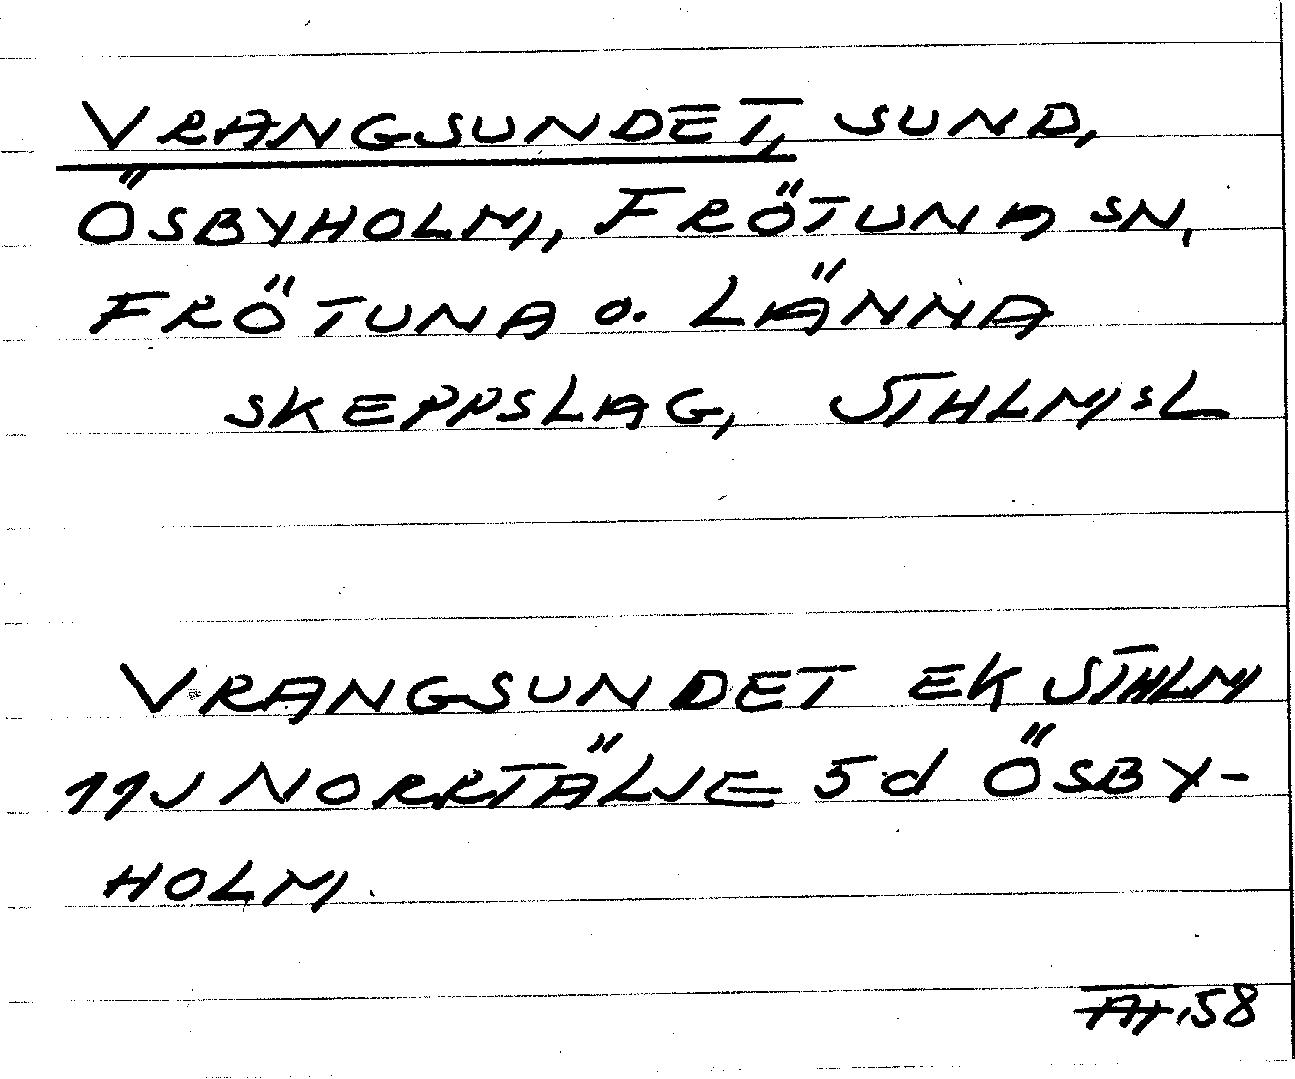 VRANGSUNDET, SUND,
ÖSBYHOLM, FRÖTUNA SN,
FRÖTUNA O. LÄNNA
SKEPPSLAG, STHLMSL
VRANGSUNDET EK STHLM
11J NORRTÄLJE 5d ÖSBY-
HOLM.
58